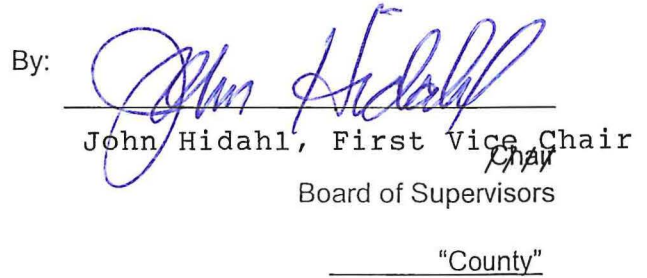 By: John Hidahl
John Hidahl, First Vice Chair
Chair
Board of Supervisors
"County"